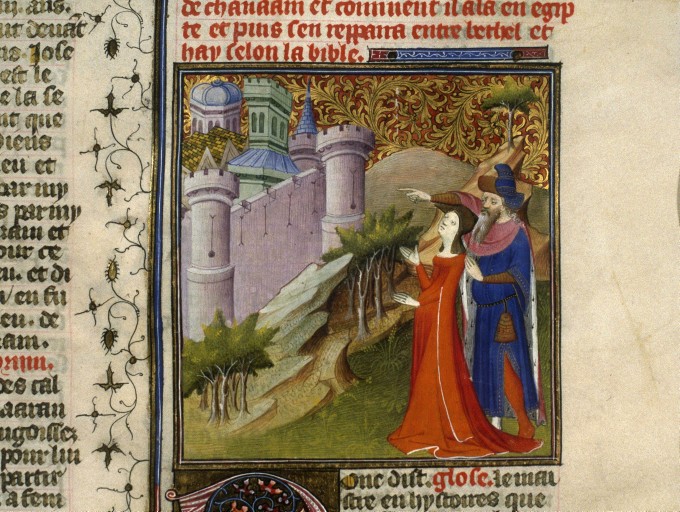 ny. ans.
ut deuāt
ns. Iose
est le
e la se
nt que
Diens
eu et
par my
s par my
nam et
our ce
u. et di
en fu
eu. de
am.
des cal
aaran
ugoisses
pour lui
partir
a fem
de chanaam et conuuent il ala en egip
te et puis sen reppaira entre bethel et
hay selon la bible.
onc dist. glose. le mai
stre en hystoires que